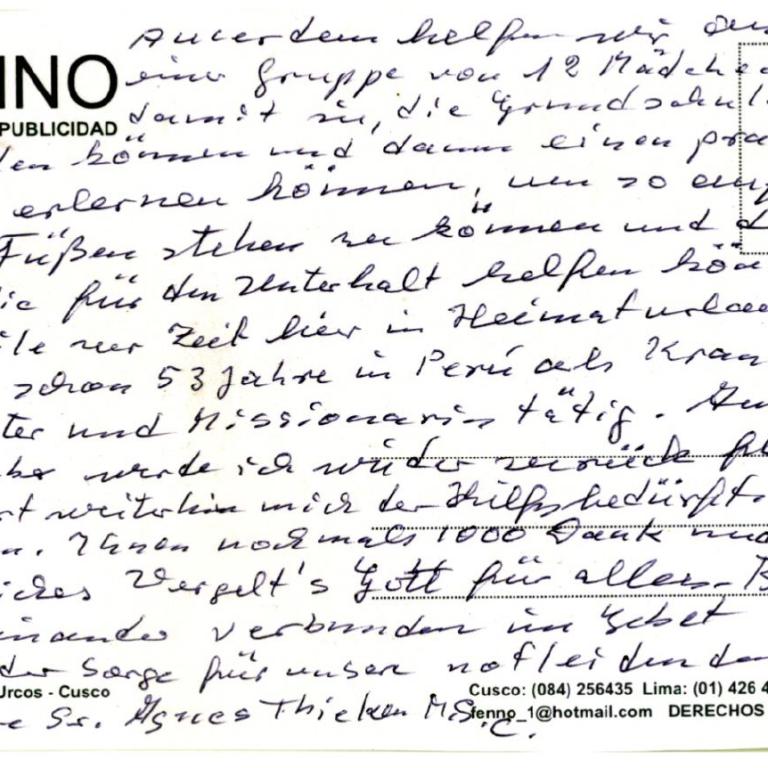 Auserdem helfen wir
INO einer Gruppe von 12 Mädche
PUBLICIDAD damit sie, die Grundschul
den können und dann einen pra
erlernen können, um so auf
Füßen stehen zu können und d
ie für den Unterhalt helfen kön
ile zur Zeit hier in Heimaturlau
schon 53 Jahre in Perú als Kran
ter und Missionarin tätig. An
werde ich wieder zurück fl
rt weiterhin mich der Hilfsbedürft.
n. Ihnen nochmals 1000 Dank und
iches Vergelt's Gott für alles- B
inander verbunden im Gebet
der Sorge für unsere notleidenden
Urcos - Cusco Cusco: (084) 256435 Lima: (01) 426 4
re Sr. Agnes Thielen M.S.C.
fenno_1@hotmail.com DERECHOS